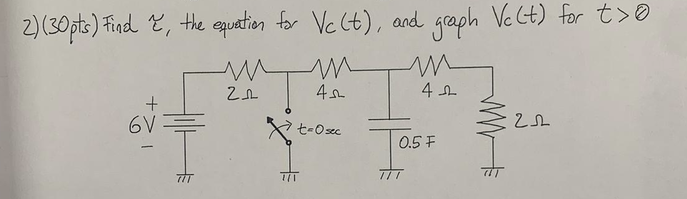 2)(30pts) Find τ, the equation for Vc(t), and graph Vc(t) for t>0
2Ω 4Ω 4Ω
+
6V
-
t=0sec
0.5 F
2Ω